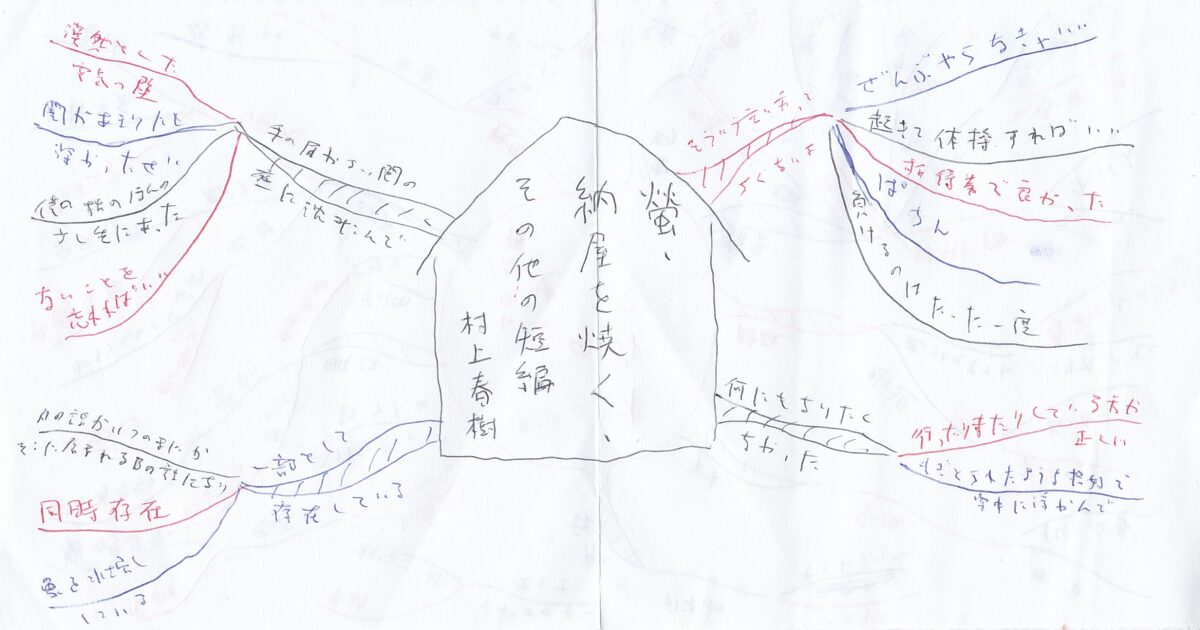 螢・
納屋を焼く・
その他の短編
村上春樹
漠然とした
空気の壁
闇があまりにも
深かった
僕の指の ほんの
少し先にあった
ないことを
忘れればいい
手の届かない闇の
に沈みこんで
そういう言い
ちくないよ
ぜんぶやらなきゃ
起きて体操すればいい
招待券で良かった
ぱちん
負けるのはたった一度
何にもなりたく
なかった
行ったり来たりしている方が
正しい
もぎとられたような格好で
宙に浮かんで
一部として
存在している
Aの話がいつのまにか
そこに含まれるBの話になり
同時存在
している